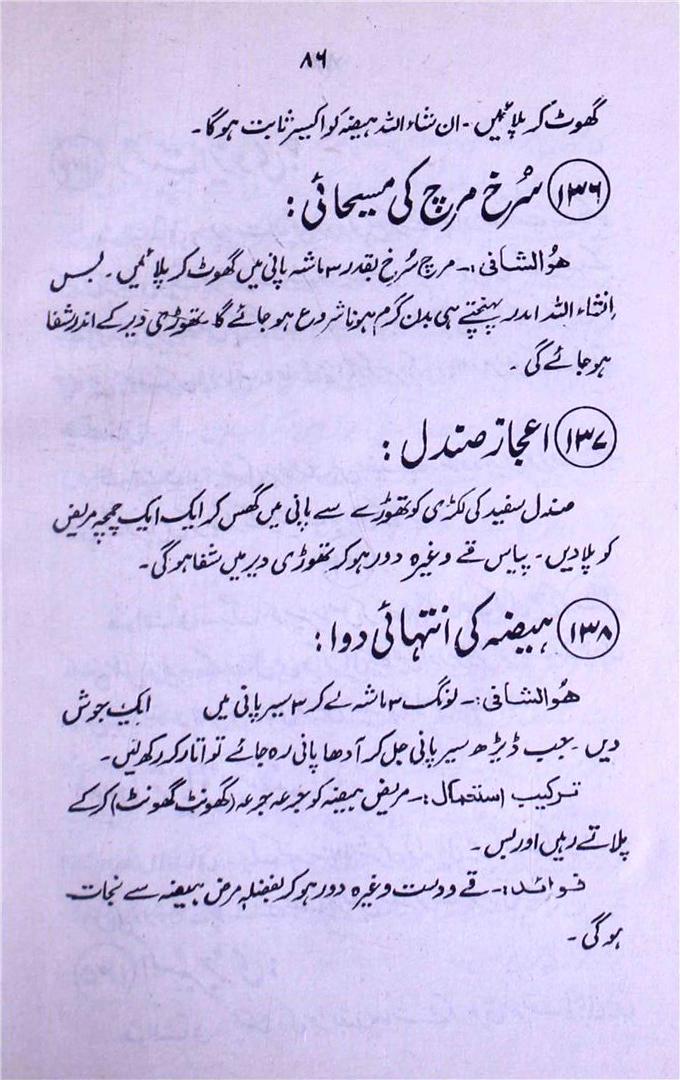 ۸۶
گھوٹ کر پلائیں - ان شاء اللہ ہیضہ کو اکسیر ثابت ہوگا۔
۱۳۶ سُرخ مرچ کی مسیحائی :
ھُوالشافی :۔ مرچ سُرخ بقدر ۳ ماشہ پانی میں گھوٹ کر پلائیں ۔ بس
اِنشاء اللہ اندر پہنچتے ہی بدن گرم ہونا شروع ہو جائے گا۔ تھوڑی دیر کے اندر شفا
ہو جائے گی ۔
۱۳۷ اعجاز صندل :
صندل سفید کی لکڑی کو تھوڑے سے پانی میں گھس کر ایک ایک چمچہ مریض
کو پلا دیں ۔ پیاس قے وغیرہ دور ہو کر تھوڑی دیر میں شفا ہوگی ۔
۱۳۸ ہیضہ کی انتہائی دوا :
ھُوالشافی :۔ لونگ ۳ ماشہ لے کر ۳ سیر پانی میں ایک جوش
دیں ۔ جب ڈیڑھ سیر پانی جل کر آدھا پانی رہ جائے تو اتار کر رکھ لیں۔
ترکیب استعمال :۔ مریض ہیضہ کو جرعہ جرعہ (گھونٹ گھونٹ) کر کے
پلاتے رہیں اور بس ۔
فوائد :۔ قے و دست وغیرہ دور ہو کر بفضلہٖ مرض ہیضہ سے نجات
ہو گی ۔